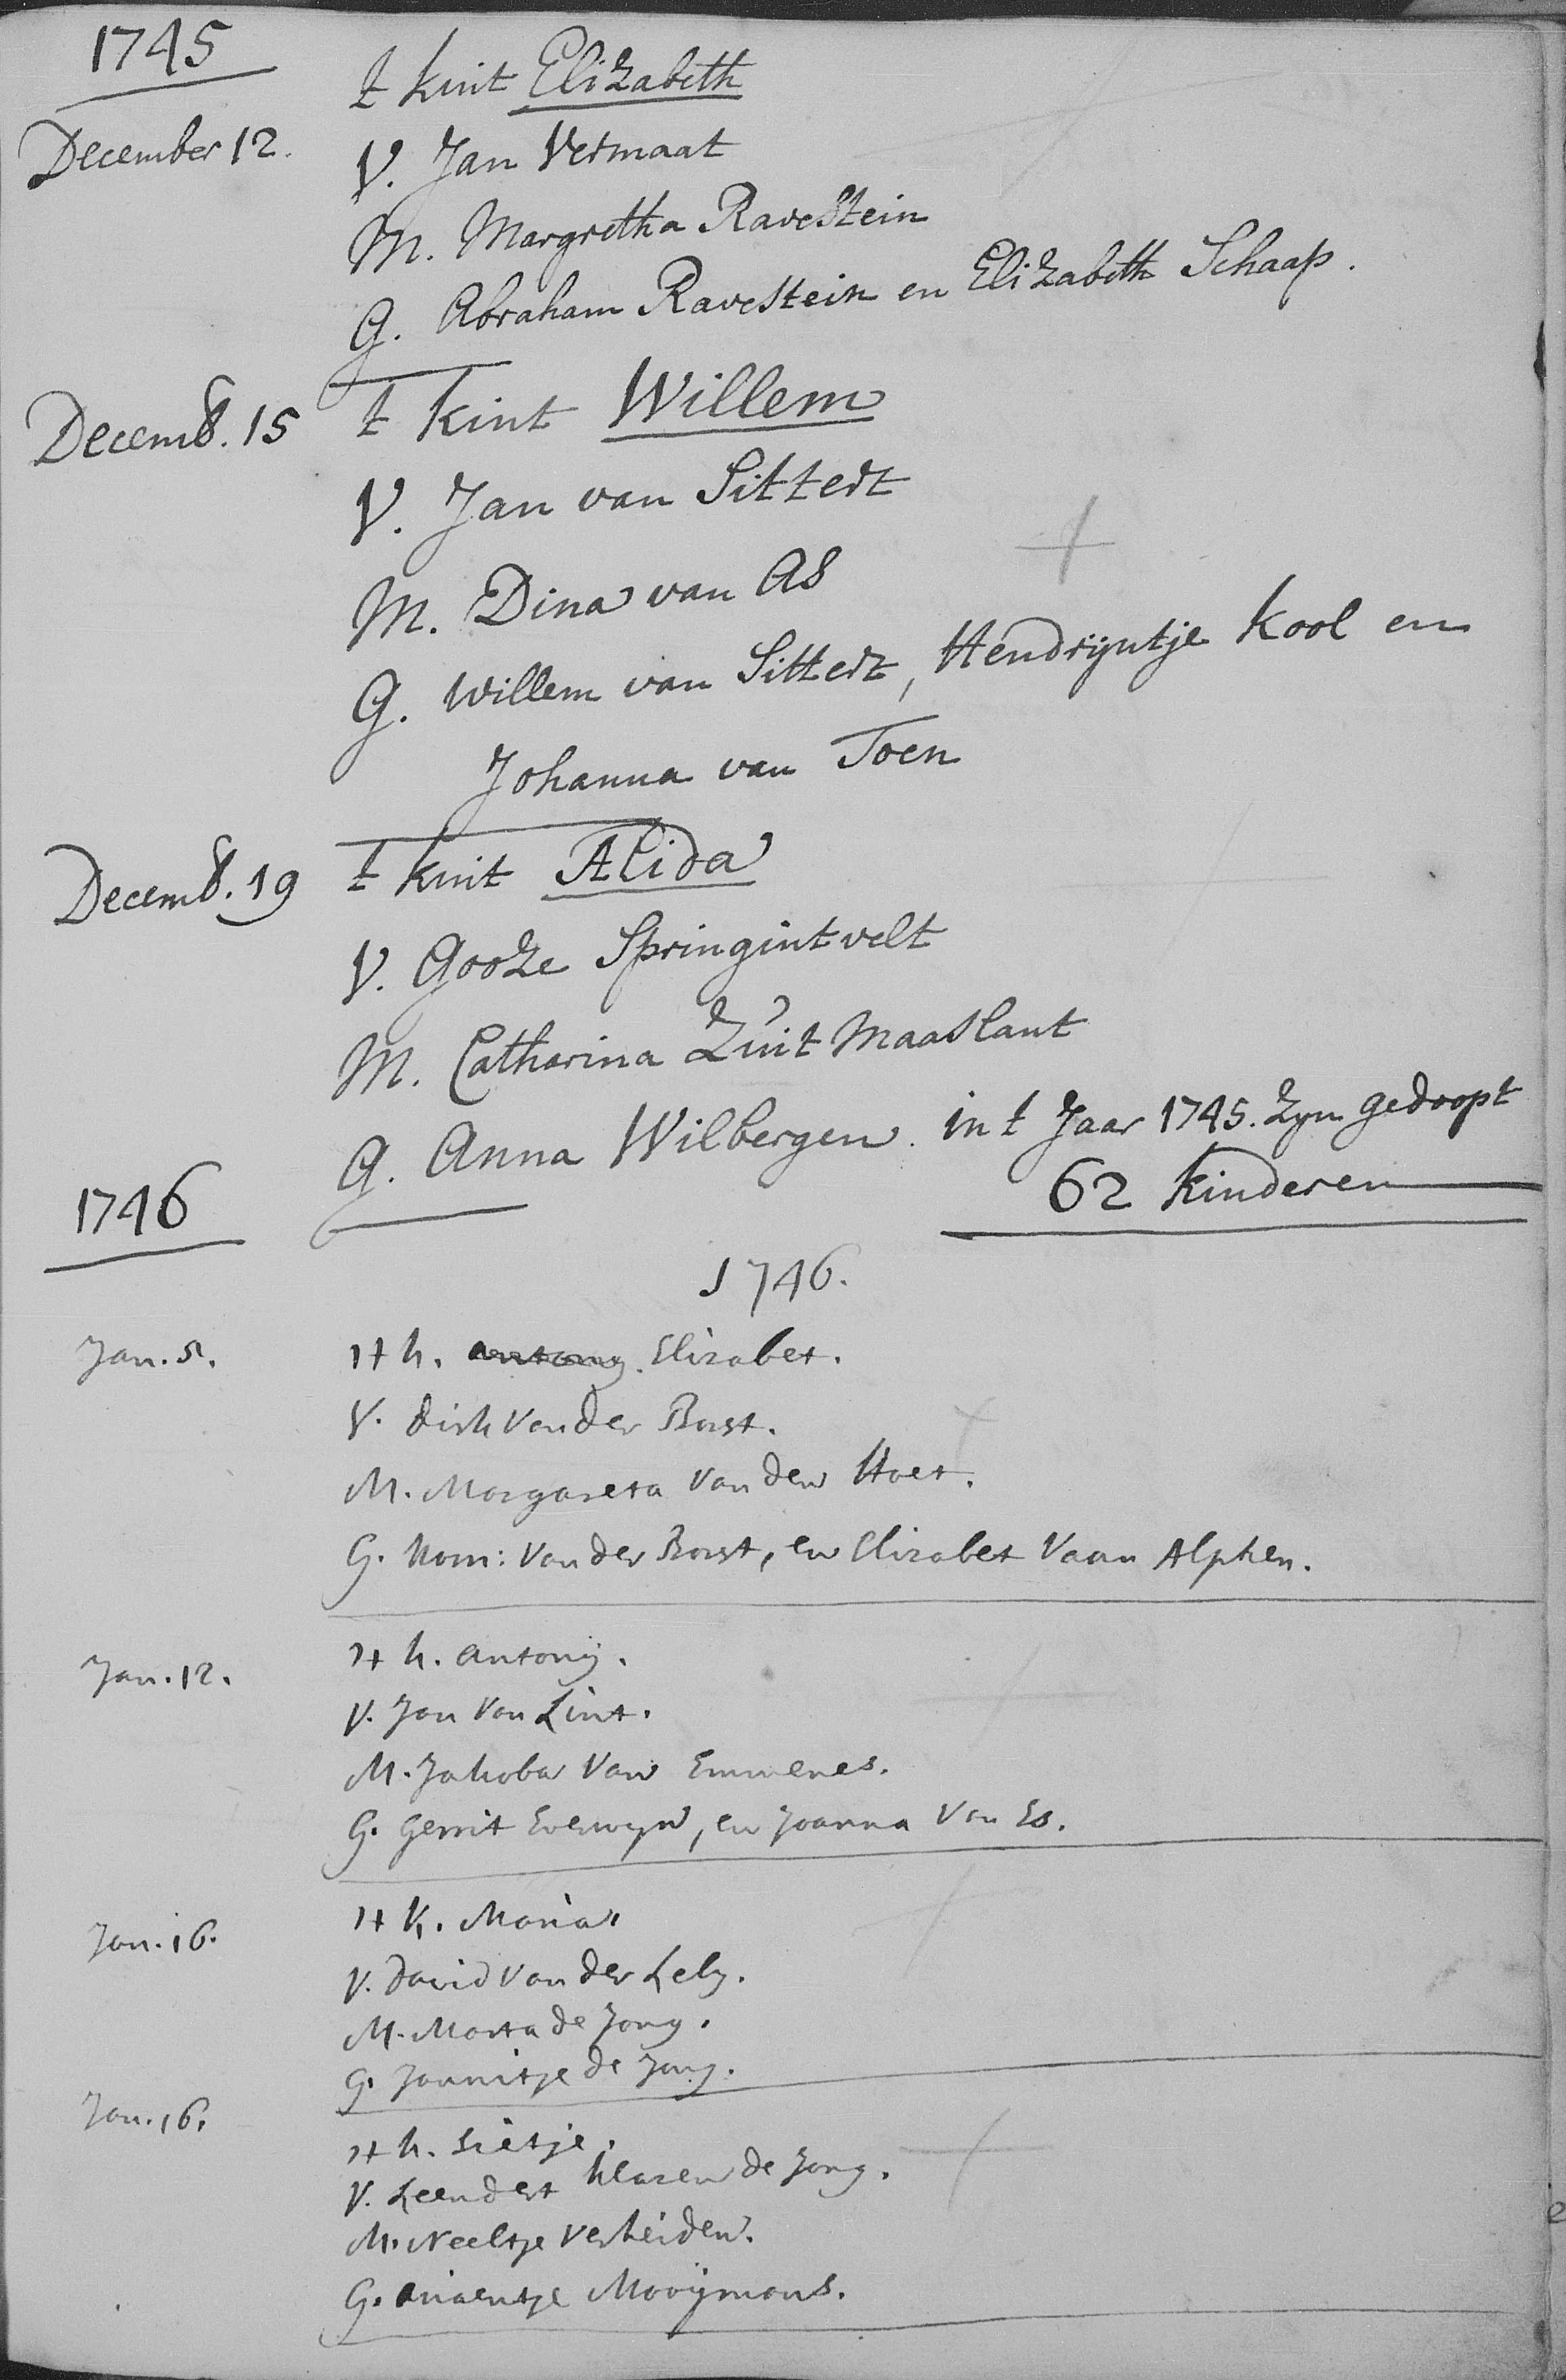 1745
t kint Elizabeth
December 12.
V. Jan Vermaat
M. Margretha Ravestein
G. Abraham Ravestein en Elizabeth Schaap.
Decemb. 15 t kint Willem
V. Jan van Sittert
M. Dina van As
G. Willem van Sittert, Hendrijntje Kool en
Johanna van Toen
Decemb. 19 t kint Alida
V. Gooze Springintvelt
M. Catharina Zuit Maaslant
G. Anna Wilbergen. in t Jaar 1745. zyn gedoopt
62 kinderen
1746
1746.
Jan. 5. 't k. antony. Elizabet.
V. dirk van der Borst.
M. Margareta van den Hoet.
G. van der Borst, en Elizabet Vaan Alphen.
Jan. 12. 't k. antony.
V. Jan van Lint.
M. Jakoba van Emmenes.
G. Gerrit Everwyn, en Joanna van Es.
Jan. 16. 't K. Maria.
V. david van der Lely.
M. Marta de Jong.
G. Jannitje de Jong.
Jan. 16. 't k. Sietje.
V. Leendert klazen de Jong.
M. Neeltje Verheiden.
G. Ariaentje Mooijmans.